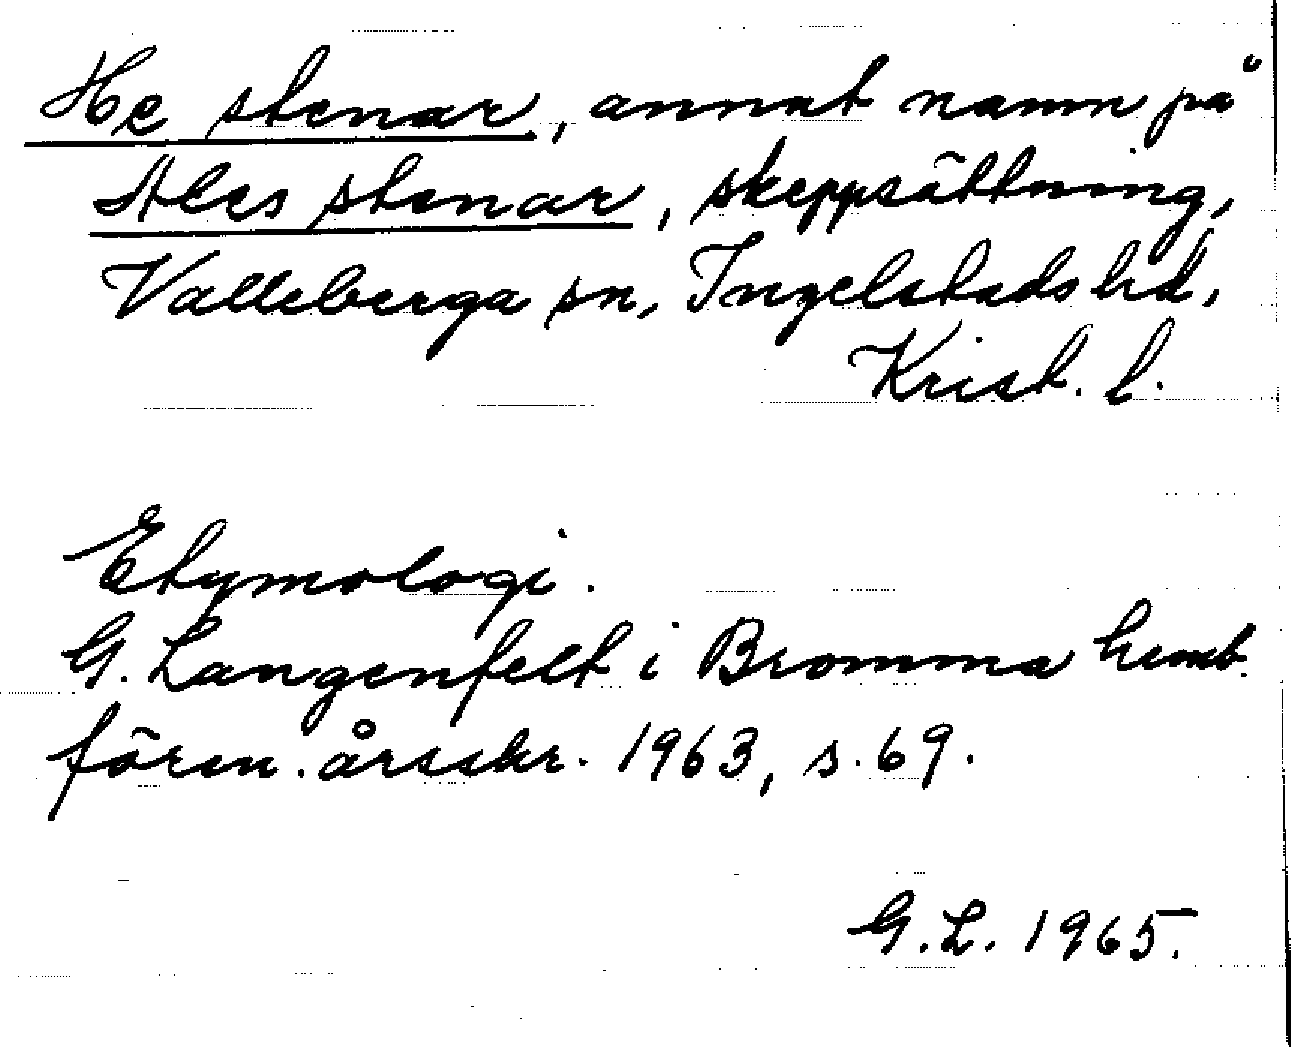 He stenar, annat namn på
Ales stenar, skeppsättning,
Valleberga sn, Ingelstads hd,
Krist. l.
Etymologi.
G. Langenfelt i Bromma hemb.
fören. årsskr. 1963, s. 69.
G. L. 1965.